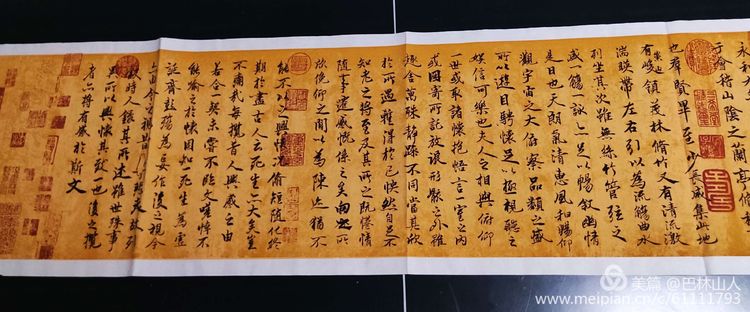 永和九
于會稽山陰之蘭亭脩
也羣賢畢至少長咸集此地
有崇山峻領茂林脩竹又有清流激
湍暎帶左右引以為流觴曲水
列坐其次雖無絲竹管弦之
盛一觴一詠亦足以暢敘幽情
是日也天朗氣清惠風和暢仰
觀宇宙之大俯察品類之盛
所以遊目騁懷足以極視聽之
娛信可樂也夫人之相與俯仰
一世或取諸懷抱悟言一室之內
或因寄所託放浪形骸之外雖
趣舍萬殊靜躁不同當其欣
於所遇暫得於己怏然自足不
知老之將至及其所之既惓情
隨事遷感慨係之矣向之所
欣俛仰之間以為陳迹猶不
能不以之興懷況脩短隨化終
期於盡古人云死生亦大矣豈
不痛哉每攬昔人興感之由
若合一契未嘗不臨文嗟悼不
能喻之於懷固知一死生為虛
誕齊彭殤為妄作後之視今
亦由今之視昔
敘時人錄其所述雖世殊事
異所以興懷其致一也後之攬
者亦將有感於斯文
美篇 @巴林山人
www.meipian.cn/c/61111793